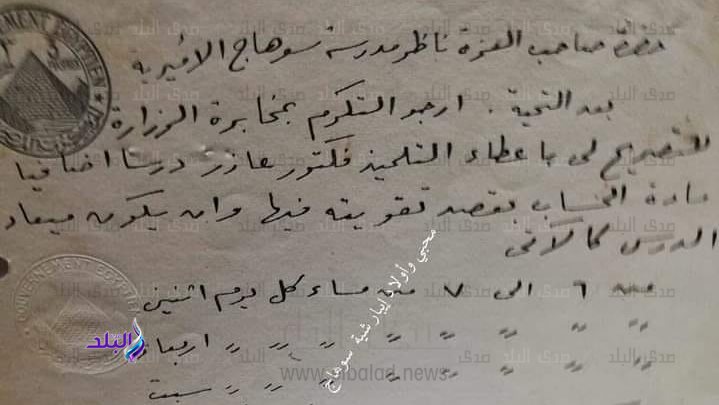 حضرة صاحب العزة ناظر مدرسة سوهاج الاميرية
بعد التحية . ارجو التكرم بمخابرة الوزارة
للتصريح لى باعطاء التلميذ فكتور عازر درسا اضافيا
مادة الحساب بقصد تقويته فيها وان يكون ميعاد
الدرس كالآتى
من ٦ الى ٧ من مساء كل يوم اثنين
" " " " " " " " اربعاء
" " " " " " " " سبت
محبي وأولاد إيبارشية سوهاج
صدى البلد
www.elbalad.news
GOUVERNEMENT EGYPTIEN